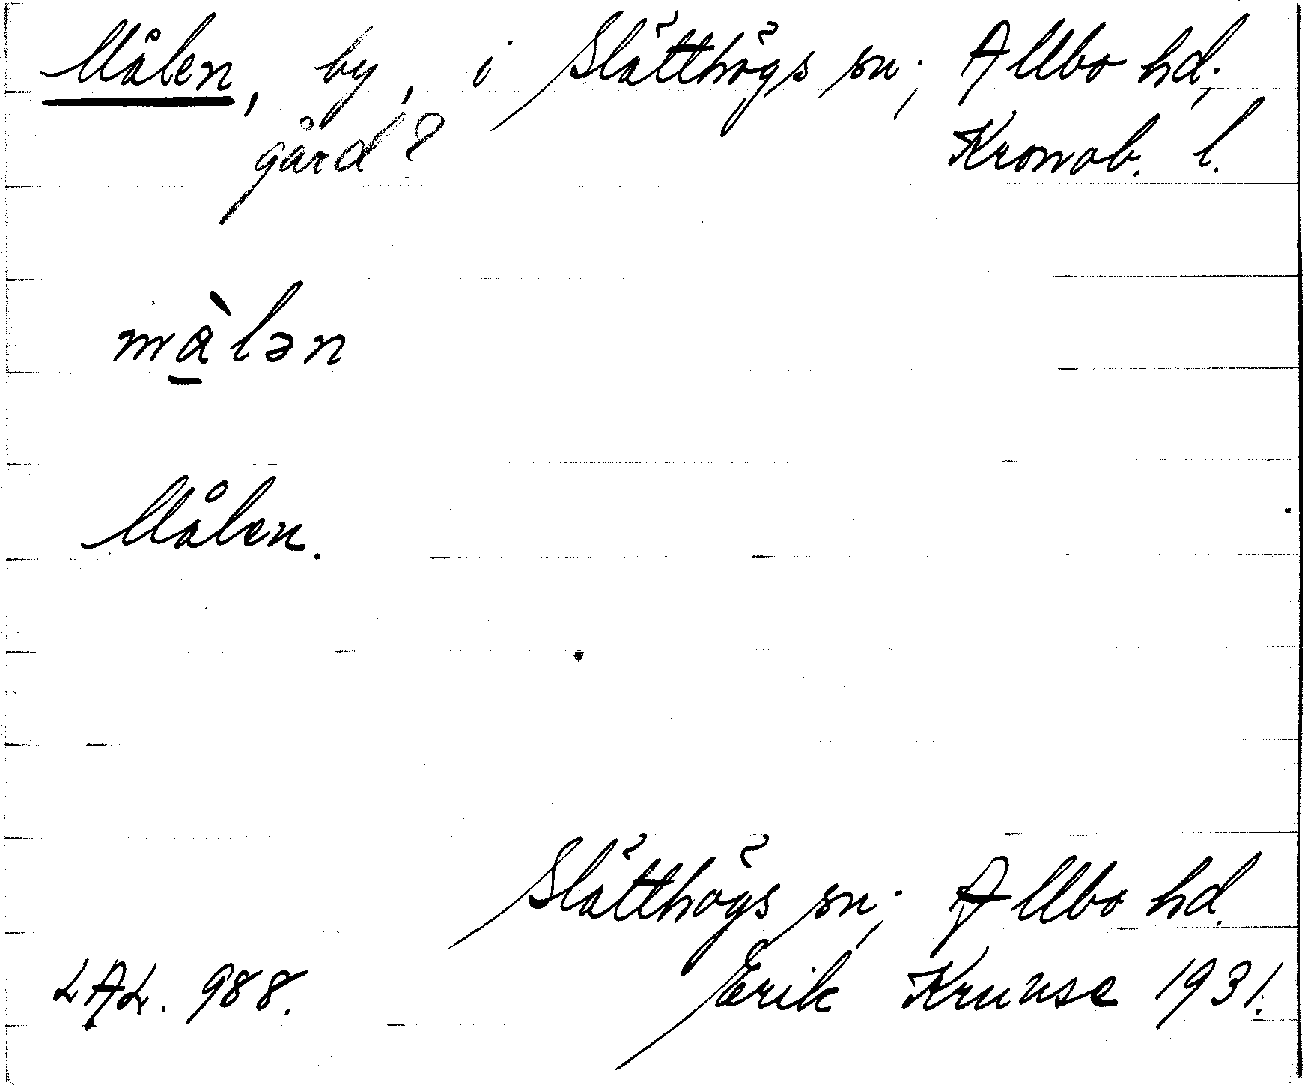 Målen, by, i Slätthögs sn; Allbo hd;
gård? Kronob. l.
mà̱lən
Målen.
Slätthögs sn; Allbo hd.
LAL. 988. Erik Kruuse 1931.